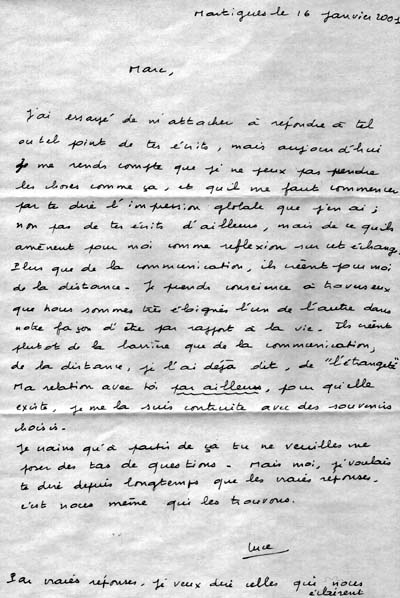 Martigues le 16 janvier 2001
Marc,
J'ai essayé de m'attacher à répondre à tel
ou tel point de tes écrits, mais aujourd'hui
je me rends compte que je ne peux pas prendre
les choses comme ça, et qu'il me faut commencer
par te dire l'impression globale que j'en ai ;
non pas de tes écrits d'ailleurs, mais de ce qu'ils
amènent pour moi comme reflexion sur cet échange.
Plus que de la communication, ils créent pour moi
de la distance. Je prends conscience à travers eux
que nous sommes très éloignés l'un de l'autre dans
notre façon d'être par rapport à la vie. Ils créent
plutôt de la barrière que de la communication,
de la distance, je l'ai déjà dit, de "l'étrangeté"
Ma relation avec toi par ailleurs, pour qu'elle
existe, je me la suis contruite avec des souvenirs
choisis.
Je crains qu'à partir de ça tu ne veuilles me
poser des tas de questions. Mais moi, je voulais
te dire depuis longtemps que les vraies réponses,
c'est nous même qui les trouvons.
Luce
Par vraies réponses, je veux dire celles qui nous
éclairent